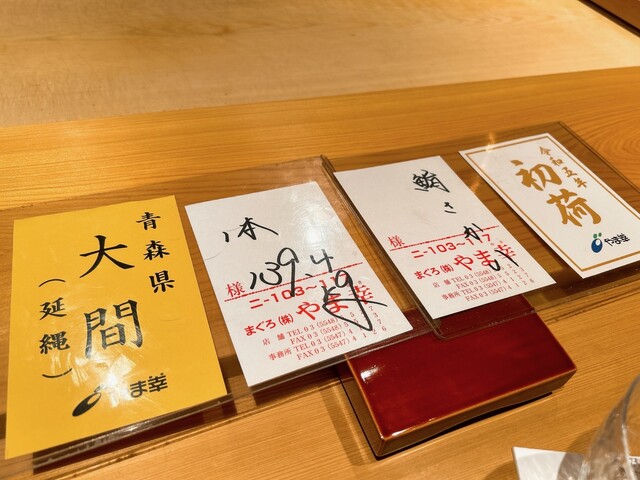 青森県
大間
（延縄）
やま幸
八本
139.4 kg
様
ニ-103~117
まぐろ(株) やま幸
店舗 TEL 03 (5548)
FAX 03 (5548)
事務所 TEL 03 (5547)
FAX 03 (5547) 4126
鮨 さかい
様
ニ-103~117
まぐろ(株) やま幸
店舗 TEL 03 (5548)
FAX 03 (5548) 5128
事務所 TEL 03 (5547)
FAX 03 (5547) 4126
令和五年
初荷
やま幸